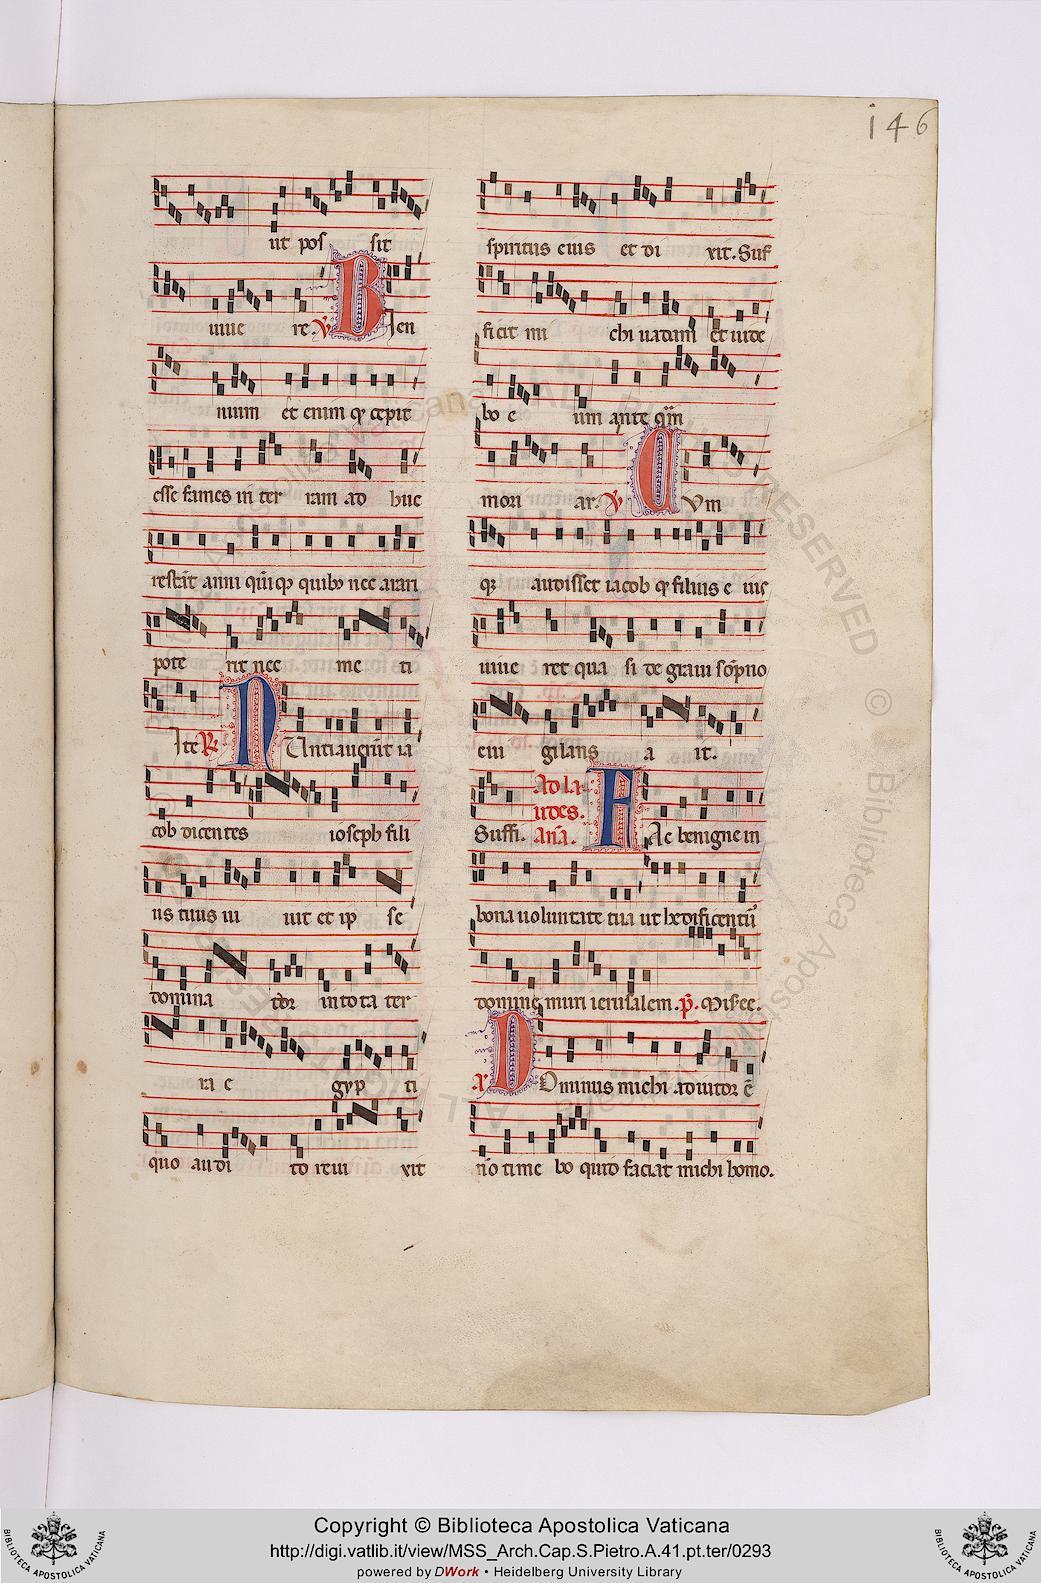 146
ut pos sit
uiue re. ℣ Bien
nium et enim q̄ cepit
esse fames in ter ram ad huc
restāt anni qn̄q̄ quibꝫ nec arari
pote rit nec me ti
Ite ℟ Nuntiauerūt ia
cob dicentes ioseph fili
us tuus ui uit et ip se
domina tor in tota ter
ra e gyp ti
quo audi to reui xit
spiritus eius et di xit. Suf
ficit mi chi uadam et uide
bo e um ante qm̄
mori ar. ℣ Cum
qꝫ audisset iacob q̄ filius e ius
uiue ret qua si de graui sōpno
eui gilans a it.
Suffi. Ad la
udes.
Aña. Fac benigne in
bona uoluntate tua ut hedificentū
domine muri ierusalem. p̄s. Misere.
a. Dominus michi adiutor ē
nō time bo quid faciat michi homo.
ALL RIGHTS RESERVED © Biblioteca Apostolica Vaticana
Copyright © Biblioteca Apostolica Vaticana
http://digi.vatlib.it/view/MSS_Arch.Cap.S.Pietro.A.41.pt.ter/0293
powered by DWork • Heidelberg University Library
BIBLIOTECA APOSTOLICA VATICANA
BIBLIOTECA APOSTOLICA VATICANA